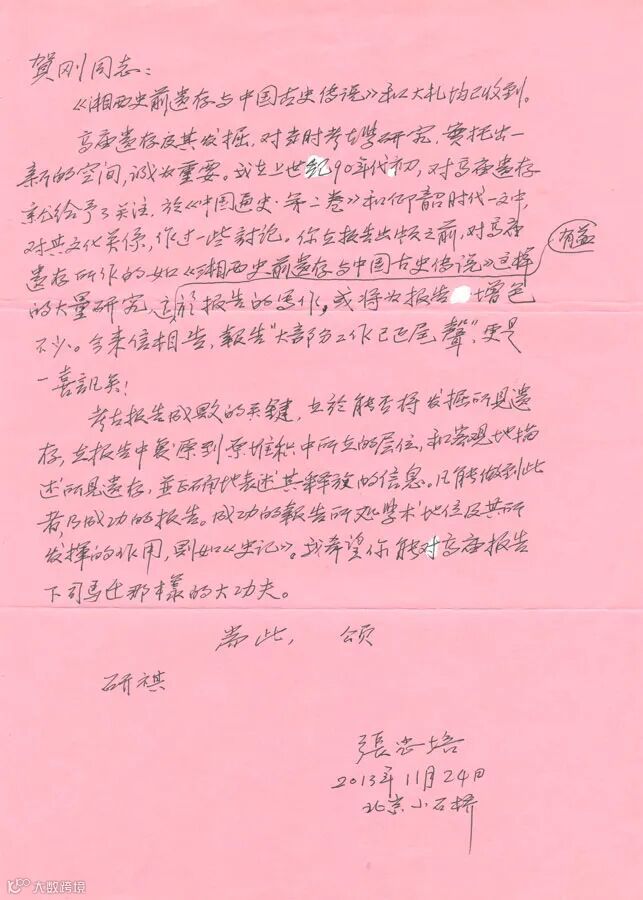 賀刚同志：
《湘西史前遗存与中国古史传说》和大札均已收到。
高庙遗存及其发掘，对当时考古学研究，实拓出一
新的空间，诚为重要。我在上世纪90年代初，对高庙遗存
就给予了关注，於《中国通史·第二卷》和仰韶时代一文中，
对其文化关係，作过一些討论。你在报告出版之前，对高庙
遗存所作的如《湘西史前遗存与中国古史传说》这样
有益
的大量研究，这於报告的写作，或将为报告增色
不少。今来信相告，報告“大部份工作已近尾聲”，更是
一喜訊矣！
考古报告成败的关键，在於能否将发掘所见遗
存，在报告中复原到原堆积中所在的层位，和客观地描
述所见遗存，並正确地表述其释放的信息。凡能做到此
者，乃成功的报告。成功的報告所处学术地位及其所
发挥的作用，則如《史记》。我希望你能对高庙报告
下司马迁那樣的大功夫。
耑此，頌
研祺
張忠培
2013年11月24日
北京小石桥
大数跨境